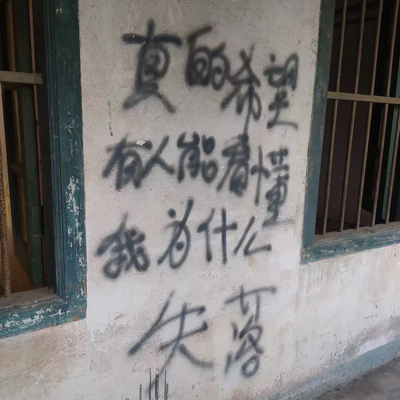 真的希望
有人能看懂
我为什么
失落